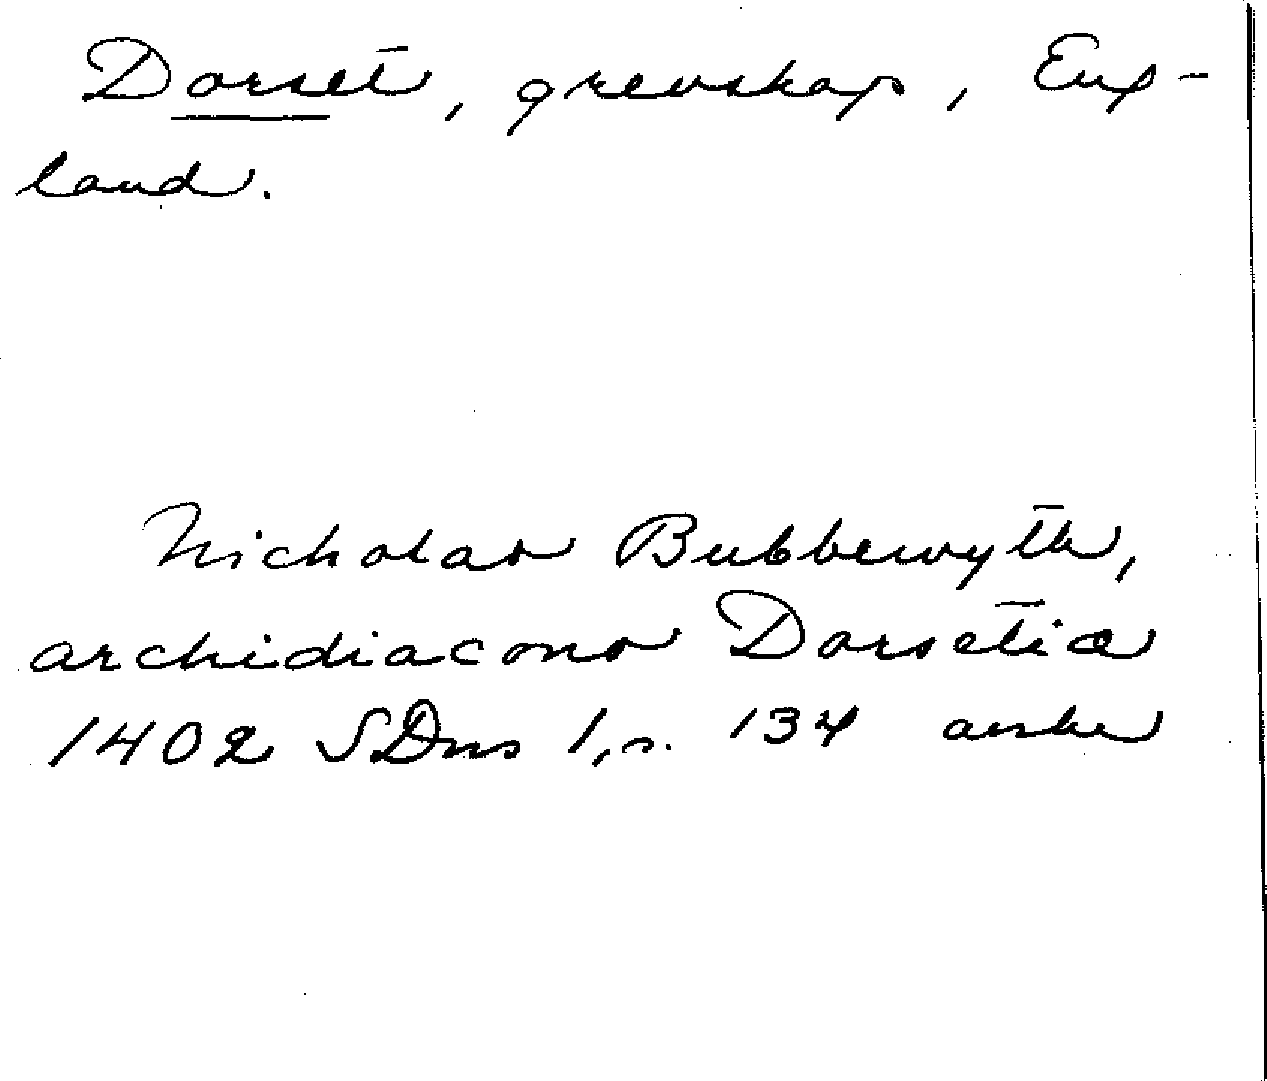 Dorset, grevskap, Eng-
land.
Nicholao Bubbewyth,
archidiacono Dorsetie
1402 SDns 1, s. 134 avskr